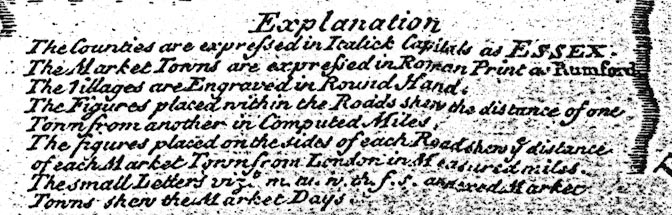 Explanation
The Counties are expreſsed in Italick Capitals as ESSEX.
The Market Towns are expreſsed in Roman Print as Rumford
The Villages are Engraved in Round Hand.
The Figures placed within the Roads shew the distance of one
Town from another in Computed Miles,
The figures placed on the sides of each Road shew ẙ distance
of each Market Town from London in Measured miles.
The small Letters vizᵗ. m. tu. w. th. f. s. annexed Market
Towns shew the Market Days.